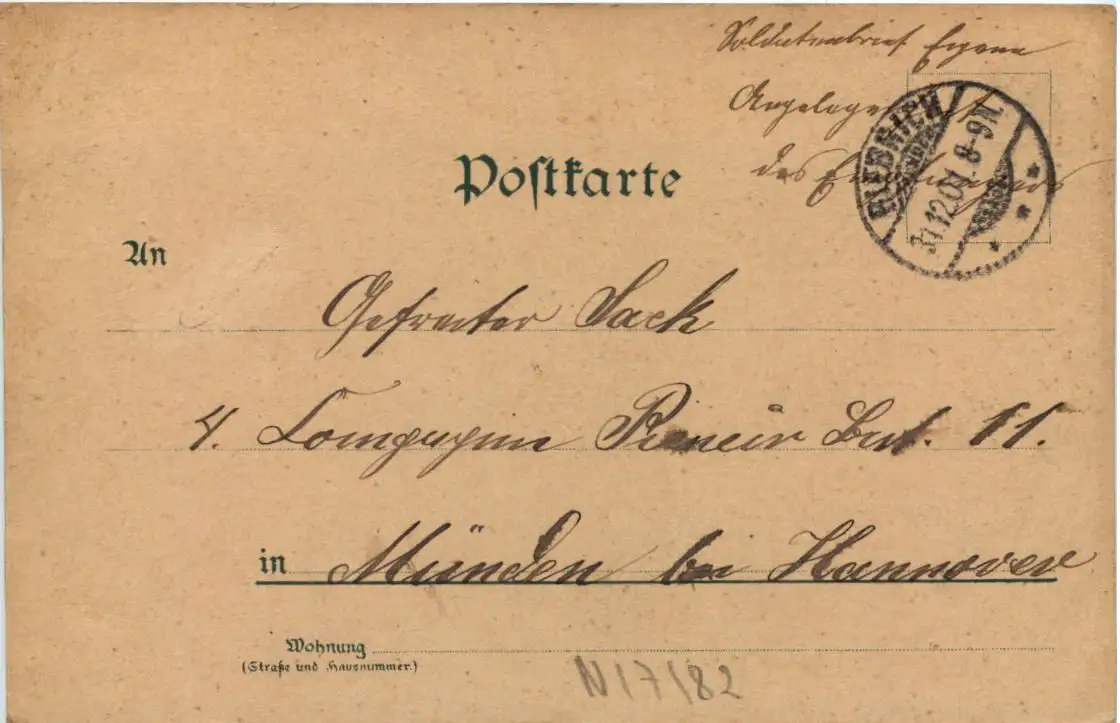 Soldatenbrief Eigene
Angelegenheit
des Empfängers
BIEBRICH
31.12.01. 8-9N.
Postkarte
An
Gefreiter Sack
4. Compagnie Pioneir Bat. 11.
in Münden bei Hannover
Wohnung
(Straße und Hausnummer.)
N17/82